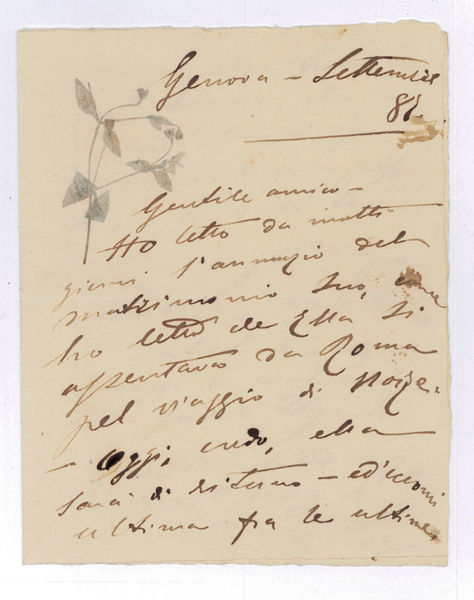 Genova - Settembre
81
Gentile amico -
Ho letto da molti
giorni l'annuzio del
matrimonio Suo, come
ho letto che Ella si
assentava da Roma
pel viaggio di Nozze.
- Oggi, credo, ella
sarà di ritorno - ed eccomi
ultima fra le ultime,